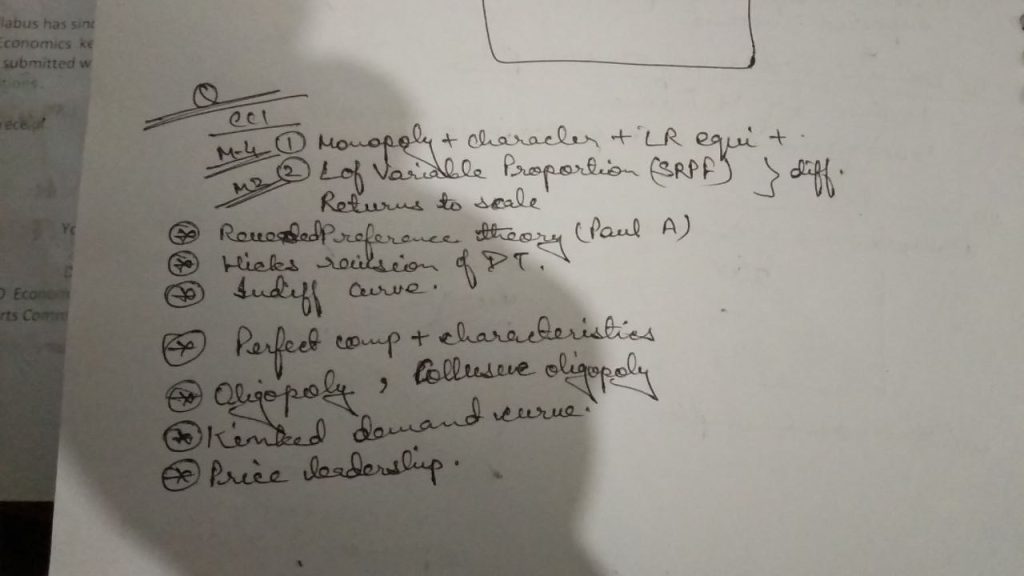 llabus has sinc
Economics ke
submitted w
Q
CC1
M-4 ① Monopoly + character + LR equi +
M2 ② Lof Variable Proportion (SRPF) } diff.
Returns to scale
Preference theory (Paul A)
Hicks revision of DT.
Indiff curve.
Perfect comp + characteristics
Oligopoly, Collusive oligopoly
Kinked demand curve.
Price leadership.
O Econom
rts Comm